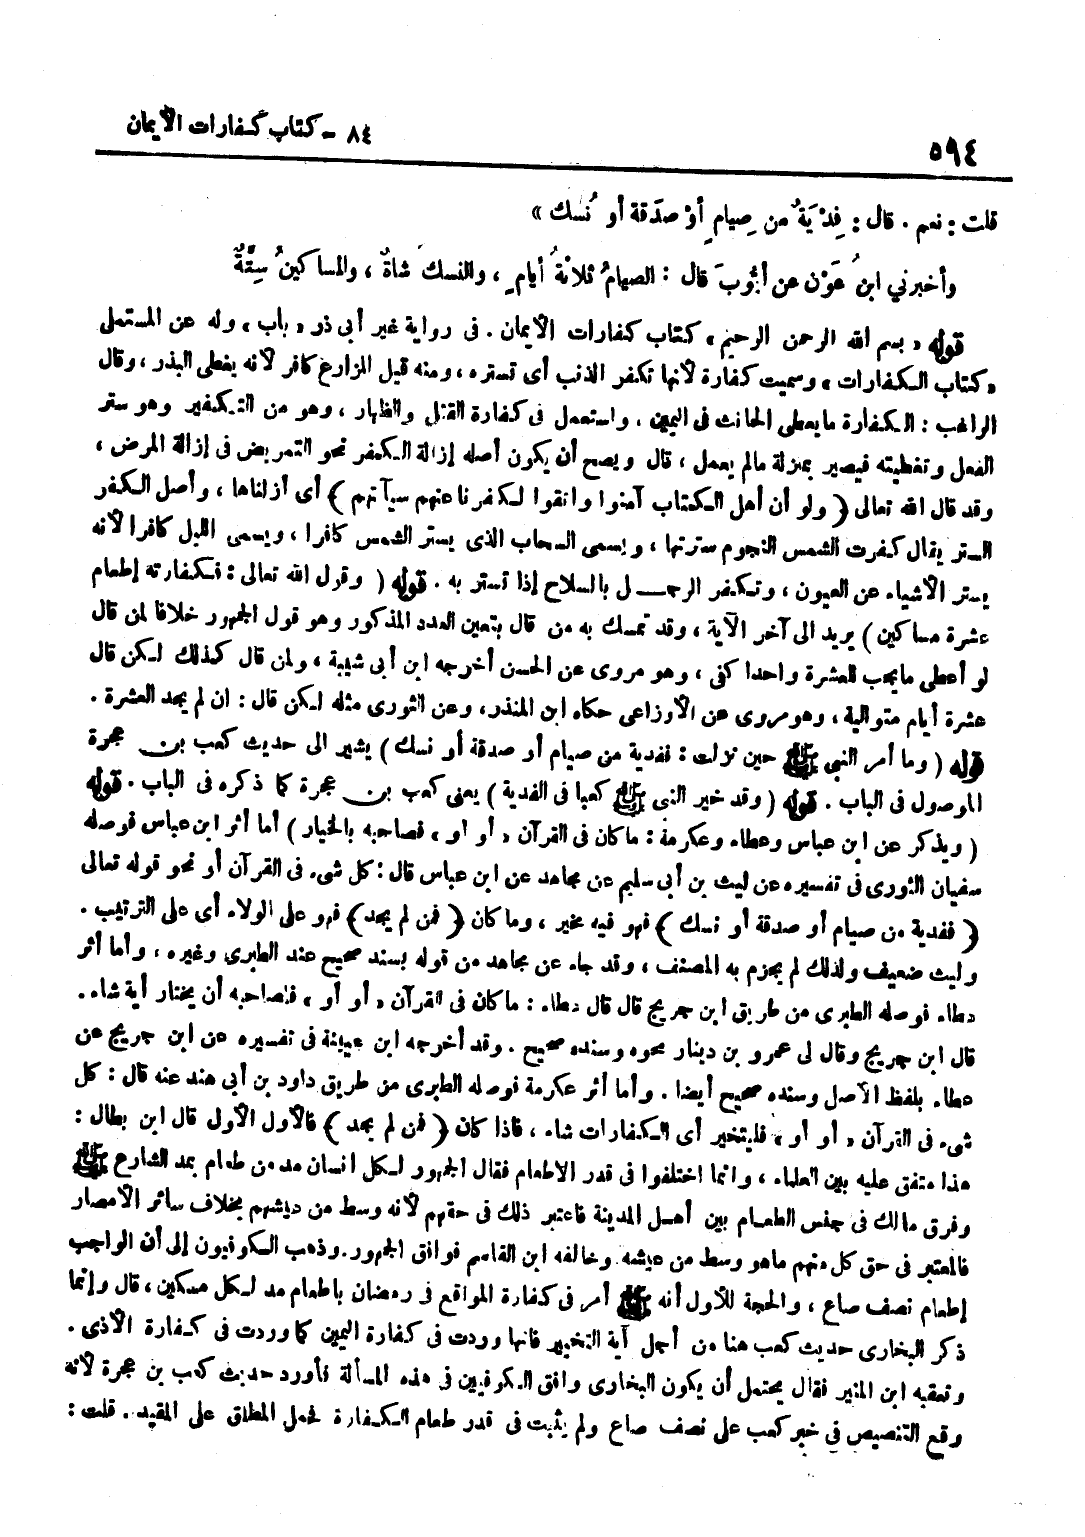 ٥٩٤
٨٤ - كتاب كفارات الأيمان
قلت : نعم . قال : فِدْيَةٌ من صِيام أوْ صدَقة أو نُسك »
وأخبرني ابنُ عَوْن عن أيُّوبَ قال : الصيامُ ثلاثةُ أيام ، والنسك شاةٌ ، والمساكينُ سِتَّةٌ
قوله « بسم الله الرحمن الرحيم ، كتاب كفارات الأيمان . فى رواية غير أبى ذر « باب » وله عن المستملى
« كتاب الكفارات » وسميت كفارة لأنها تكفر الذنب أى تستره ، ومنه قيل المزارع كافر لأنه يغطى البذر ، وقال
الراغب : الكفارة ما يعطى الحانث فى اليمين ، واستعمل فى كفارة القتل والظهار ، وهو من التكفير وهو ستر
الفعل وتغطيته فيصير بمنزلة مالم يعمل ، قال ويصح أن يكون أصله إزالة الكفر نحو التمريض فى إزالة المرض ،
وقد قال الله تعالى ( ولو أن أهل الكتاب آمنوا واتقوا لكفرنا عنهم سيآتهم ) أى أزلناها ، وأصل الكفر
الستر يقال كفرت الشمس النجوم سترتها ، ويسمى السحاب الذى يستر الشمس كافرا ، ويسمى الليل كافرا لأنه
يستر الأشياء عن العيون ، وتكفر الرجل بالسلاح إذا تستر به . قوله ( وقول الله تعالى : فكفارته إطعام
عشرة مساكين ) يريد الى آخر الآية ، وقد تمسك به من قال بتعين العدد المذكور وهو قول الجمهور خلافا لمن قال
لو أعطى ما يجب للعشرة واحدا كفى ، وهو مروى عن الحسن أخرجه ابن أبى شيبة ، ولمن قال كذلك لكن قال
عشرة أيام متوالية ، وهو مروى عن الأوزاعى حكاه ابن المنذر ، وعن الثورى مثله لكن قال : ان لم يجد العشرة .
قوله ( وما أمر النبى ﷺ حين نزلت : ففدية من صيام أو صدقة أو نسك ) يشير الى حديث كعب بن عجرة
الموصول فى الباب . قوله ( وقد خير النبى ﷺ كعبا فى الفدية ) يعنى كعب بن عجرة كما ذكره فى الباب . قوله
( ويذكر عن ابن عباس وعطاء وعكرمة : ما كان فى القرآن « أو أو » فصاحبه بالخيار ) أما أثر ابن عباس فوصله
سفيان الثورى فى تفسيره عن ليث بن أبى سليم عن مجاهد عن ابن عباس قال : كل شىء فى القرآن أو نحو قوله تعالى
( ففدية من صيام أو صدقة أو نسك ) فهو فيه مخير ، وما كان ( فمن لم يجد ) فهو على الولاء أى على الترتيب .
وليث ضعيف ولذلك لم يجزم به المصنف ، وقد جاء عن مجاهد من قوله بسند صحيح عند الطبرى وغيره ، وأما أثر
عطاء فوصله الطبرى من طريق ابن جريج قال قال عطاء : ما كان فى القرآن « أو أو » فلصاحبه أن يختار أية شاء .
قال ابن جريج وقال لى عمرو بن دينار نحوه وسنده صحيح . وقد أخرجه ابن عيينة فى تفسيره عن ابن جريج عن
عطاء بلفظ الأصل وسنده صحيح أيضا . وأما أثر عكرمة فوصله الطبرى من طريق داود بن أبى هند عنه قال : كل
شىء فى القرآن « أو أو » فليتخير أى الكفارات شاء ، فاذا كان ( فمن لم يجد ) فالأول الأول قال ابن بطال :
هذا متفق عليه بين العلماء ، وانما اختلفوا فى قدر الاطعام فقال الجمهور لكل انسان مد من طعام بمد الشارع ﷺ
وفرق مالك فى جنس الطعام بين أهل المدينة فاعتبر ذلك فى حقهم لأنه وسط من عيشهم بخلاف سائر الأمصار
فالمعتبر فى حق كل منهم ما هو وسط من عيشه وخالفه ابن القاسم فوافق الجمهور . وذهب الكوفيون إلى أن الواجب
إطعام نصف صاع ، والحجة للأول أنه ﷺ أمر فى كفارة المواقع فى رمضان باطعام مد لكل مسكين ، قال وإنما
ذكر البخارى حديث كعب هنا من أجل آية التخيير فانها وردت فى كفارة اليمين كما وردت فى كفارة الأذى .
وتعقبه ابن المنير فقال يحتمل أن يكون البخارى وافق الكوفيين فى هذه المسألة فأورد حديث كعب بن عجرة لأنه
وقع التنصيص فى خبر كعب على نصف صاع ولم يثبت فى قدر طعام الكفارة فحمل المطلق على المقيد . قلت :